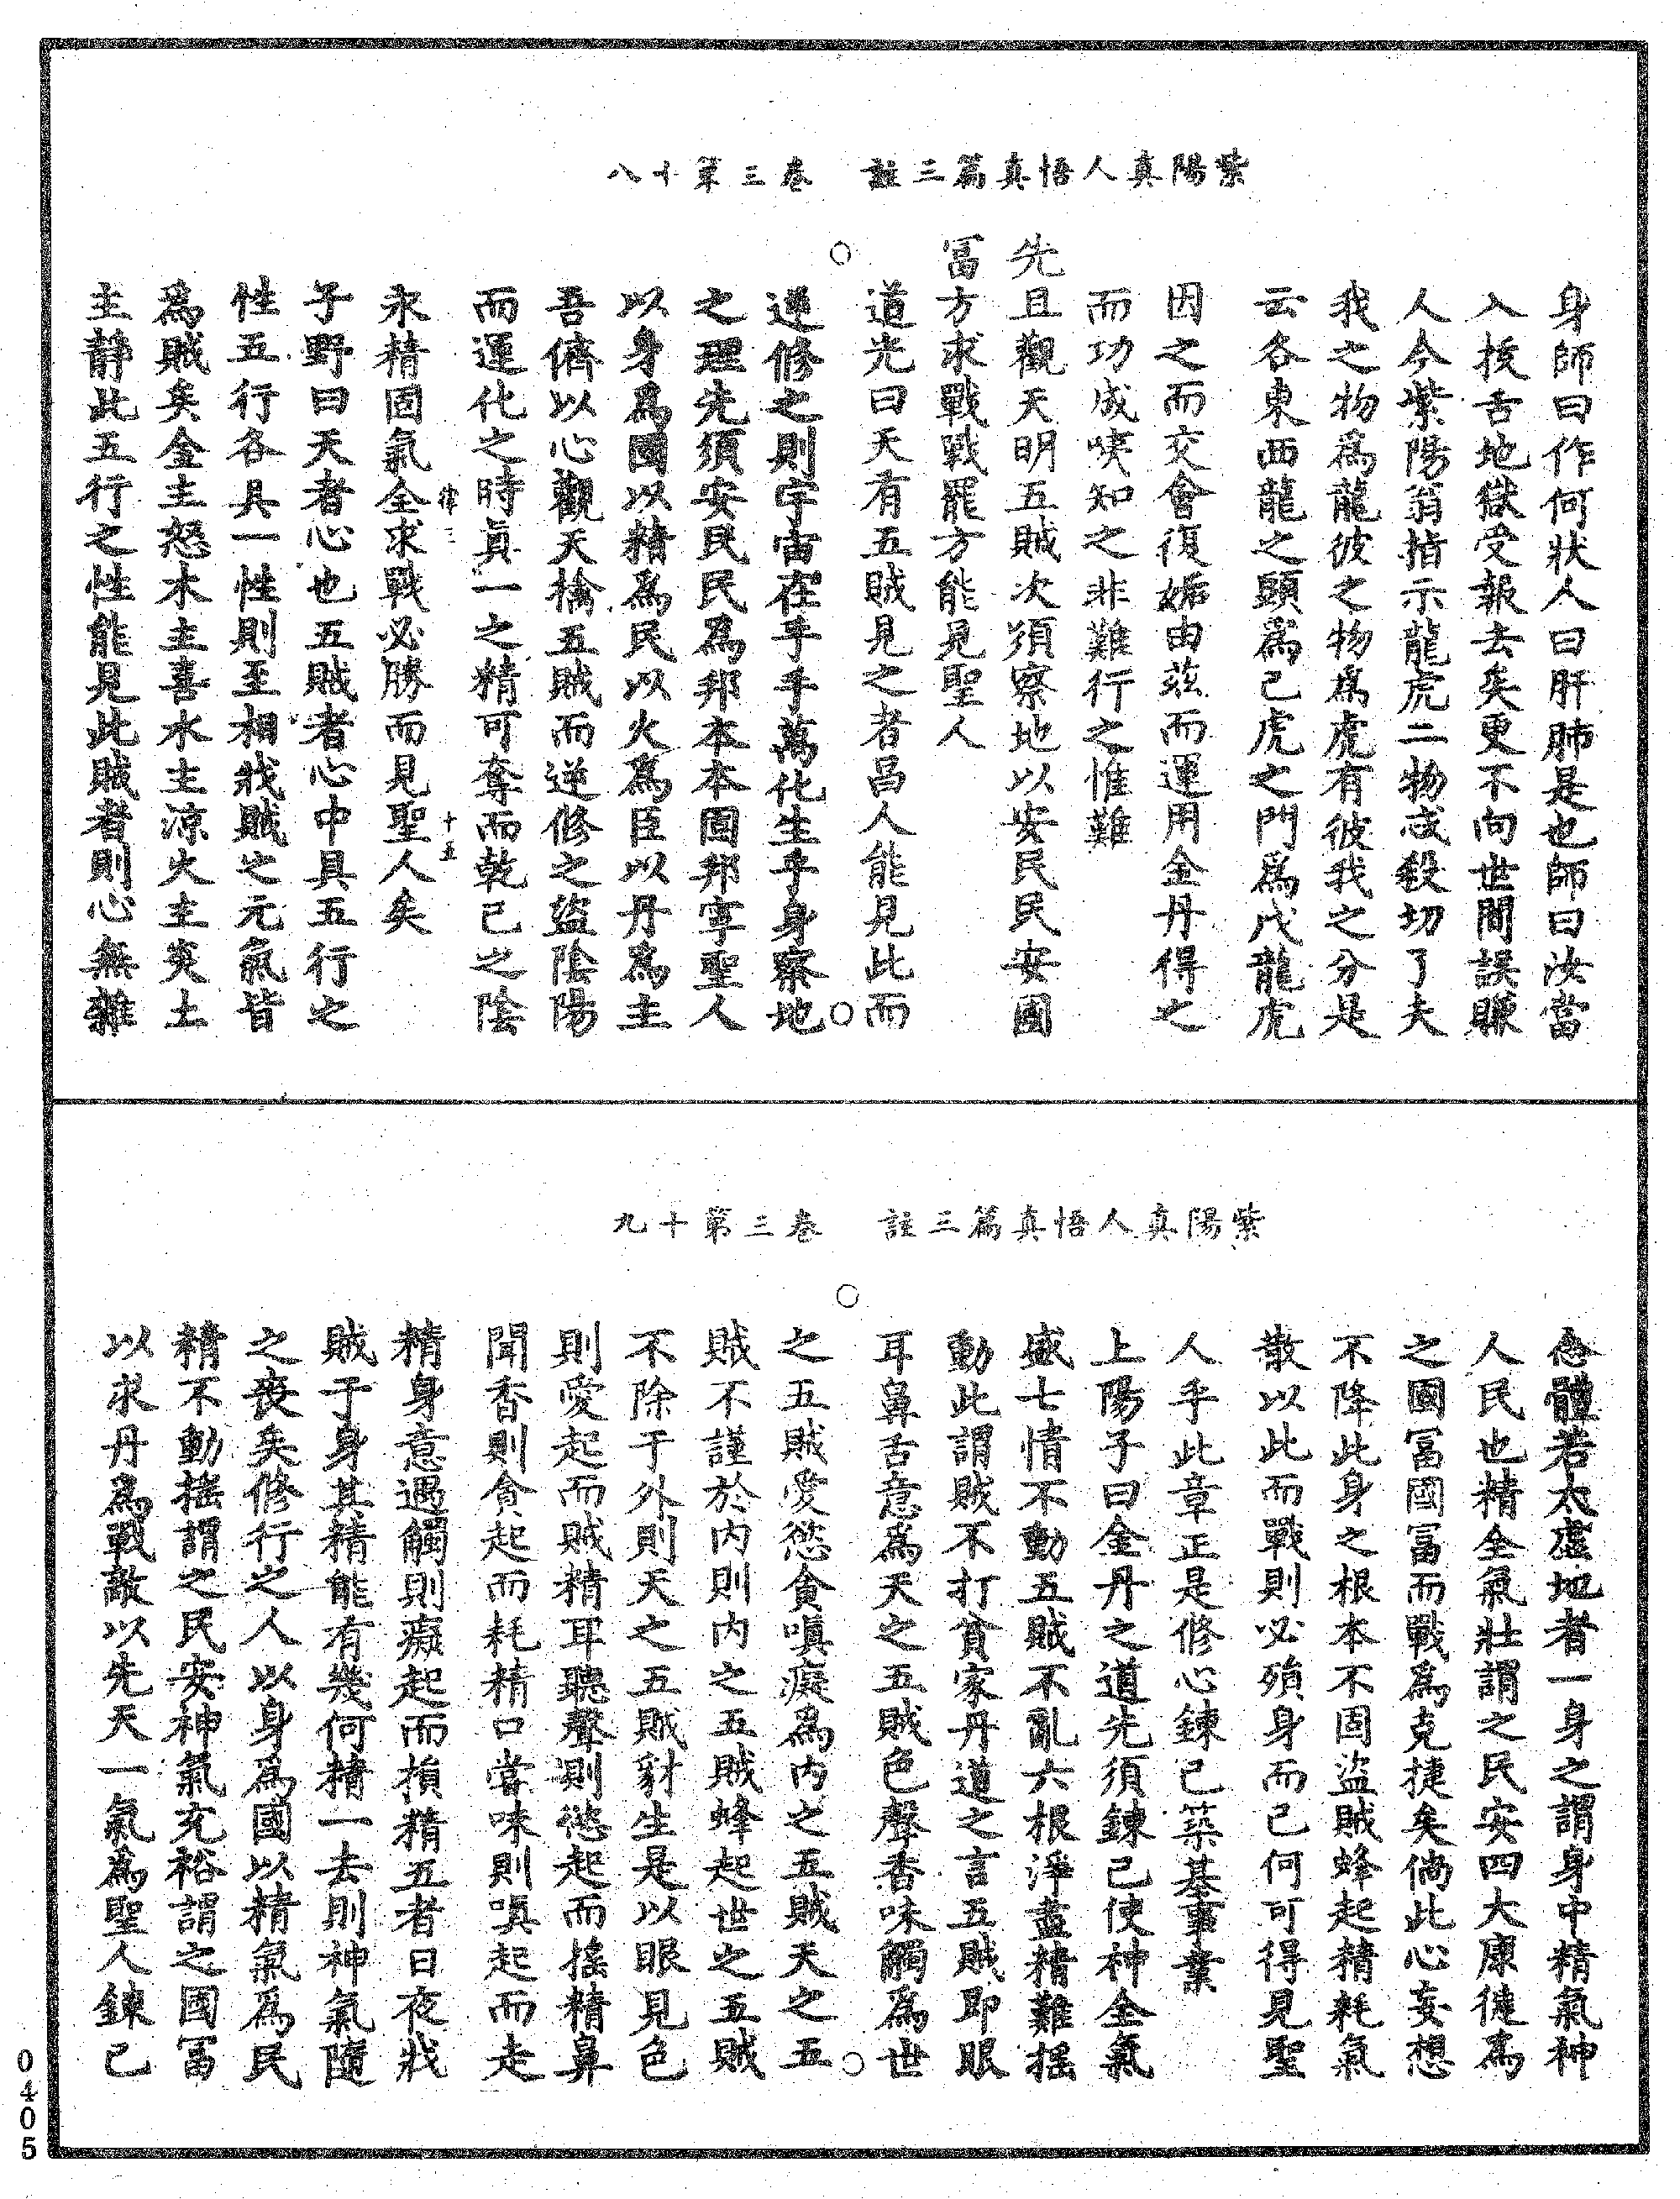 紫陽真人悟真篇三註　卷三第十八
身師曰作何狀人曰肝肺是也師曰汝當
入拔舌地獄受報去矣更不向世間誤賺
人今紫陽翁指示龍虎二物忒殺切了夫
我之物為龍彼之物為虎有彼我之分是
云各東西龍之頭為己虎之門為戊龍虎
因之而交會復姤由茲而運用金丹得之
而功成噗知之非難行之惟難
先且觀天明五賊次須察地以安民民安國
冨方求戰戰罷方能見聖人
道光曰天有五賊見之者昌人能見此而
逆修之則宇宙在乎手萬化生乎身察地
之理先須安民民為邦本本固邦寧聖人
以身為國以精為民以火為臣以丹為主
吾儕以心觀天擒五賊而逆修之盜陰陽
而運化之時眞一之精可奪而乾己之陰
永精固氣全求戰必勝而見聖人矣
律三
十五
子野曰天者心也五賊者心中具五行之
性五行各具一性則至相戕賊之元氣皆
為賊矣金主怒木主喜水主涼火主炎土
主靜此五行之性能見此賊者則心無雜
紫陽真人悟真篇三註　卷三第十九
念體若太虛地者一身之謂身中精氣神
人民也精全氣壯謂之民安四大康健為
之國冨國冨而戰為克捷矣倘此心妄想
不降此身之根本不固盜賊蜂起精耗氣
散以此而戰則必殞身而已何可得見聖
人乎此章正是修心鍊己築基事業
上陽子曰金丹之道先須鍊己使神全氣
盛七情不動五賊不亂六根淨盡精難搖
動此謂賊不打貧家丹道之言五賊即眼
耳鼻舌意為天之五賊色聲香味觸為世
之五賊愛慾貪嗔癡為內之五賊天之五
賊不謹於內則內之五賊蜂起世之五賊
不除于外則天之五賊豺生是以眼見色
則愛起而賊精耳聽聲則慾起而搖精鼻
聞香則貪起而耗精口嘗味則嗔起而走
精身意遇觸則癡起而損精五者日夜戕
賊于身其精能有幾何精一去則神氣隨
之喪矣修行之人以身為國以精氣為民
精不動搖謂之民安神氣充裕謂之國冨
以求丹為戰敵以先天一氣為聖人鍊己
0405